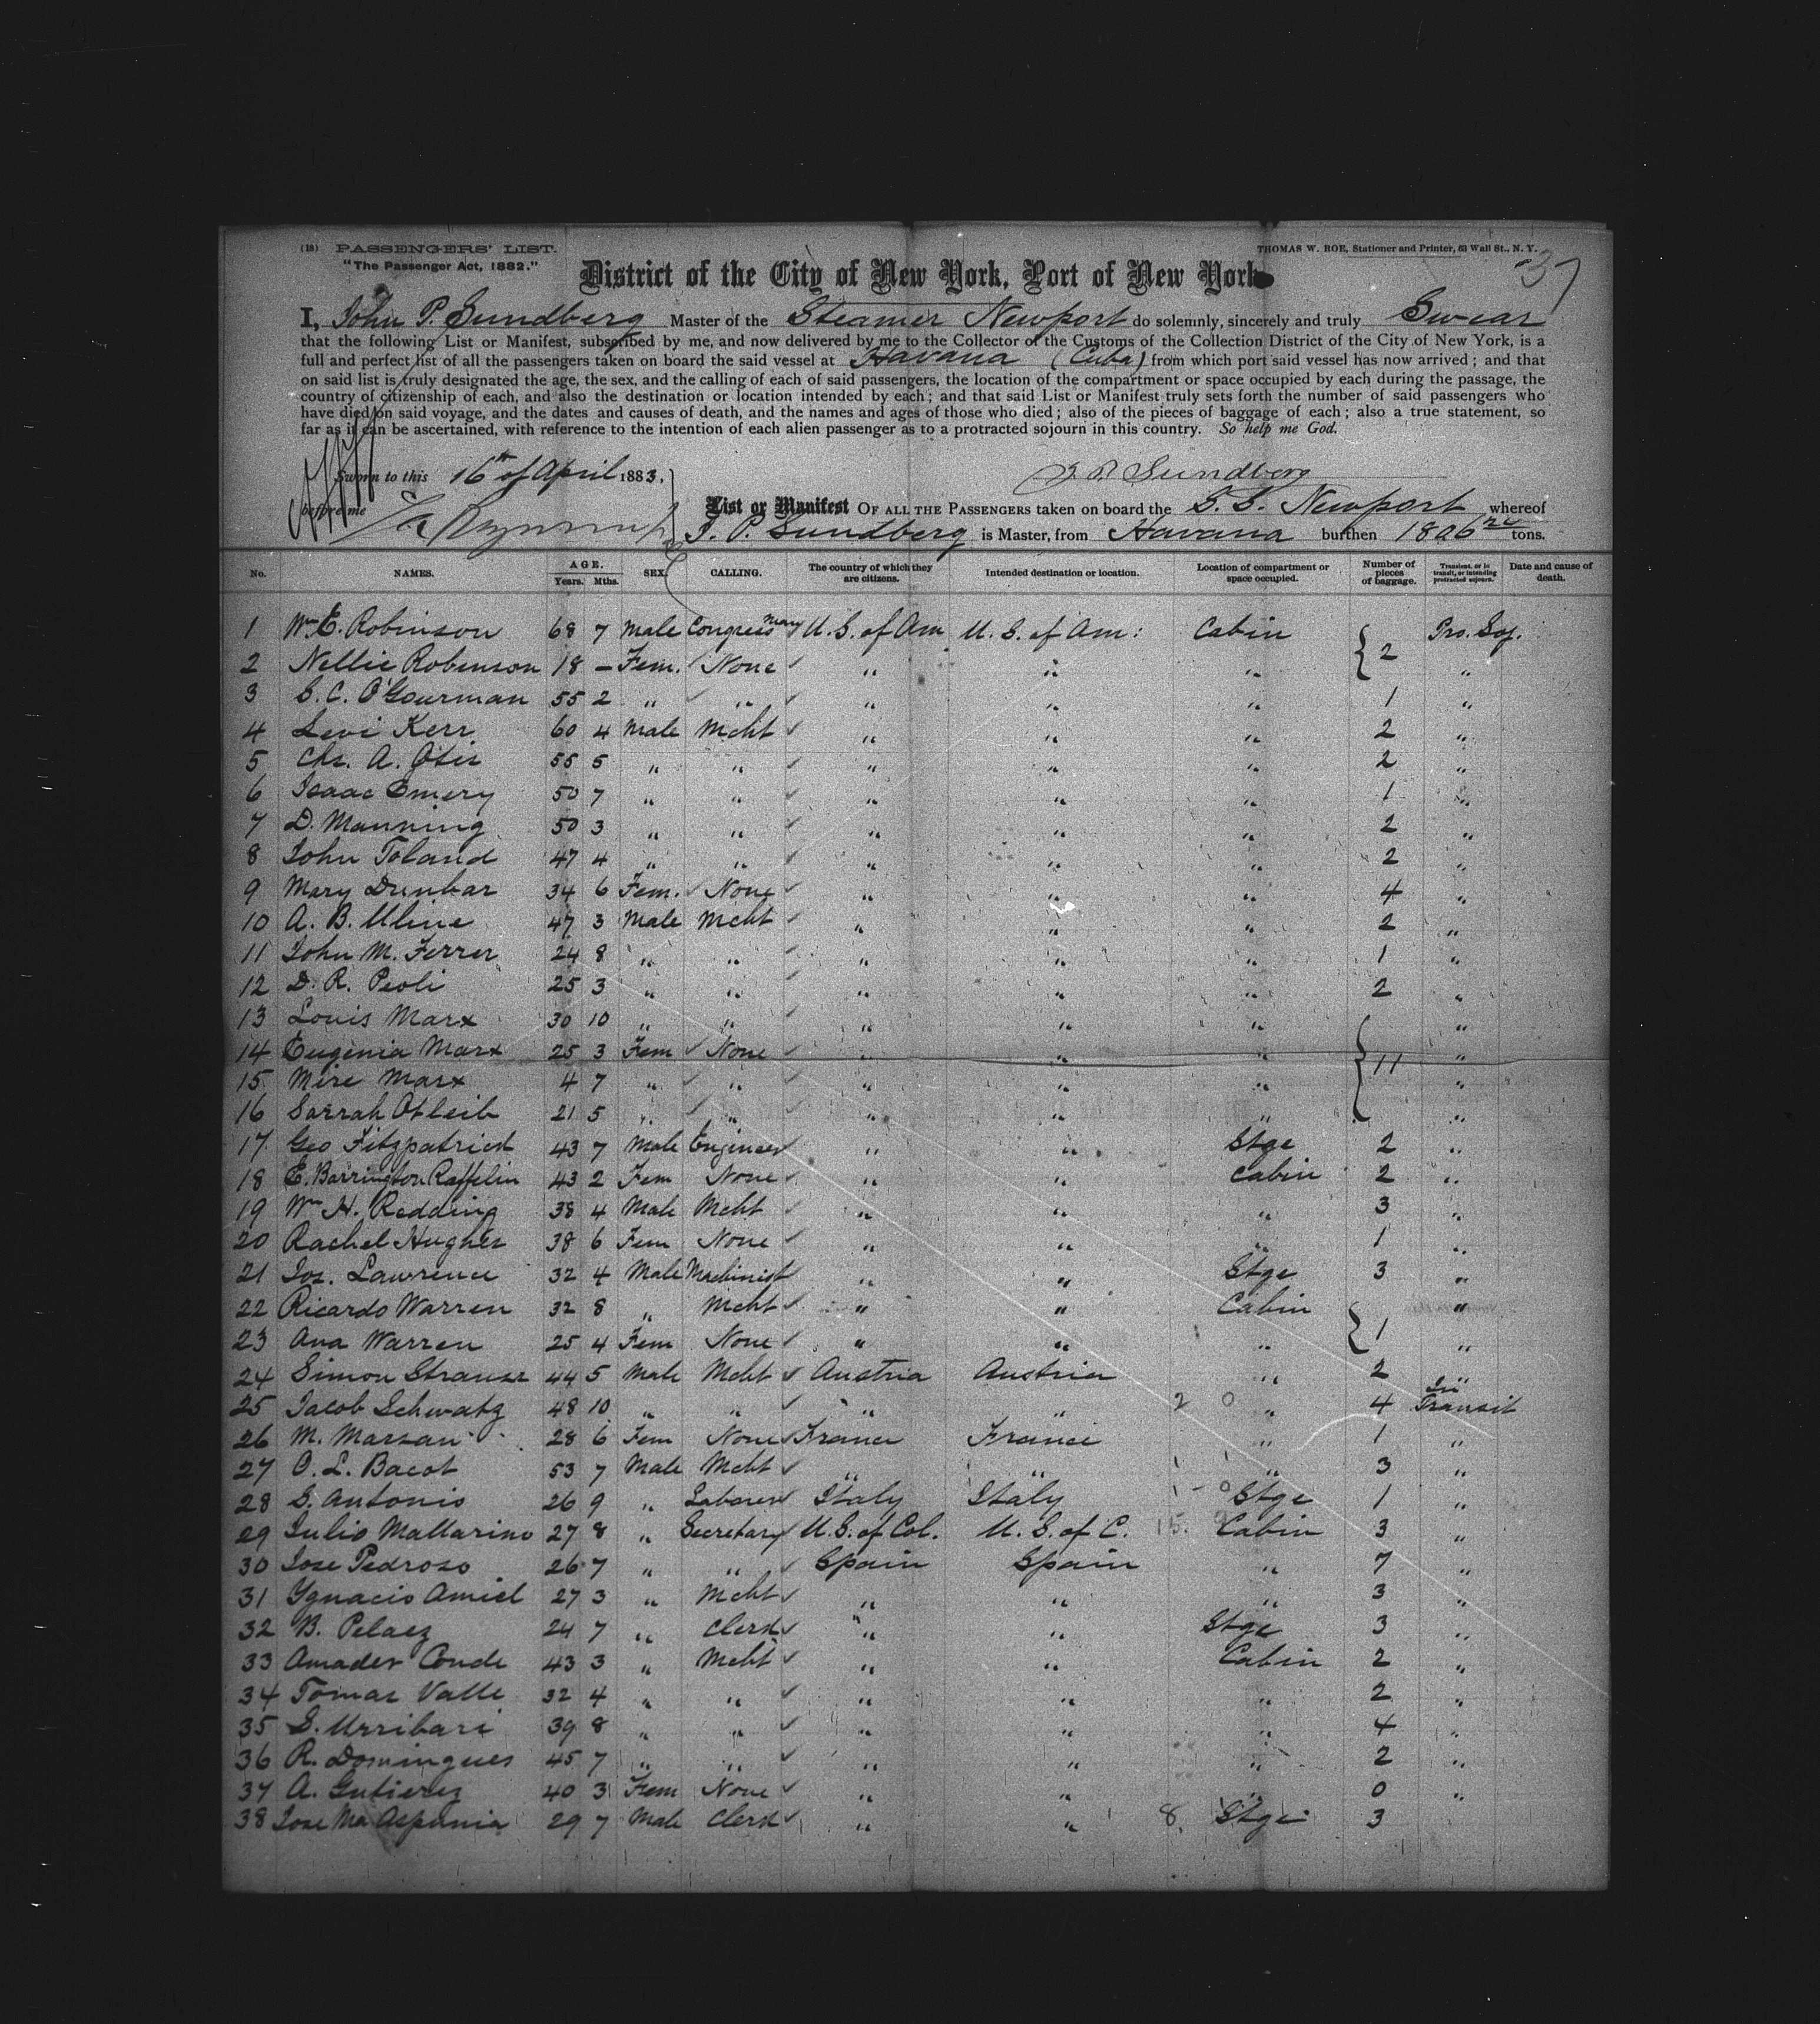 (18) PASSENGERS' LIST.
THOMAS W. ROE, Stationer and Printer, 53 Wall St., N. Y.
37
"The Passenger Act, 1882."
District of the City of New York, Port of New York
I, John P. Sundberg Master of the Steamer Newport do solemnly, sincerely and truly Swear
that the following List or Manifest, subscribed by me, and now delivered by me to the Collector of the Customs of the Collection District of the City of New York, is a
full and perfect list of all the passengers taken on board the said vessel at Havana (Cuba) from which port said vessel has now arrived; and that
on said list is truly designated the age, the sex, and the calling of each of said passengers, the location of the compartment or space occupied by each during the passage, the
country of citizenship of each, and also the destination or location intended by each; and that said List or Manifest truly sets forth the number of said passengers who
have died on said voyage, and the dates and causes of death, and the names and ages of those who died; also of the pieces of baggage of each; also a true statement, so
far as it can be ascertained, with reference to the intention of each alien passenger as to a protracted sojourn in this country. So help me God.
Sworn to this 16th of April 1883,
J. P. Sundberg
before me
List or Manifest OF ALL THE PASSENGERS taken on board the S. S. Newport whereof
J. P. Sundberg is Master, from Havana burthen tons.
No. NAMES. AGE. Years. Mths. SEX. CALLING. The country of which they are citizens. Intended destination or location. Location of compartment or space occupied. Number of pieces of baggage. Transient, or in transit, or intending protracted sojourn. Date and cause of death.
1 Wm E. Robinson 68 7 Male Congressman U. S. of Am U. S. of Am: Cabin Pro. Soj.
2 Nellie Robinson 18 – Fem. None " " " { 2 "
3 S. C. O'Gourman 55 2 " " " " " 1 "
4 Levi Kerr 60 4 Male Mcht " " " 2 "
5 Chs. A. Otis 55 5 " " " " " 2 "
6 Isaac Emery 50 7 " " " " " 1 "
7 D. Manning 50 3 " " " " " 2 "
8 John Toland 47 4 " " " " " 2 "
9 Mary Dunbar 34 6 Fem. None " " " 4 "
10 A. B. Uline 47 3 Male Mcht " " " 2 "
11 John M. Ferrer 24 8 " " " " " 1 "
12 D. R. Peoli 25 3 " " " " " 2 "
13 Louis Marx 30 10 " " " " " "
14 Eugenia Marx 25 3 Fem None " " " { 11 "
15 Mire Marx 4 7 " " " " " "
16 Sarrah Otleib 21 5 " " " " " "
17 Geo Fitzpatrick 43 7 Male Engineer " " Stge 2 "
18 E. Barrington Raffelin 43 2 Fem None " " Cabin 2 "
19 Wm H. Redding 38 4 Male Mcht " " " 3 "
20 Rachel Hughes 38 6 Fem None " " " 1 "
21 Jos. Lawrence 32 4 Male Machinist " " Stge 3 "
22 Ricardo Warren 32 8 " Mcht " " Cabin "
23 Ana Warren 25 4 Fem None " " " { 1 "
24 Simon Strauss 44 5 Male Mcht Austria Austria " 2 "
25 Jacob Schwatz 48 10 " " " " 2 0 " 4 In Transit
26 M. Marsan 28 6 Fem None France France " 1 "
27 O. L. Bacot 53 7 Male Mcht " " " 3 "
28 S. Antonio 26 9 " Laborer Italy Italy Stge 1 "
29 Julio Mallarino 27 8 " Secretary U. S. of Col. U. S. of C. Cabin 3 "
30 Jose Pedroso 26 7 " " Spain Spain " 7 "
31 Ygnacio Amiel 27 3 " Mcht " " " 3 "
32 B. Pelaez 24 7 " Clerk " " Stge 3 "
33 Amador Conde 43 3 " Mcht " " Cabin 2 "
34 Tomas Valle 32 4 " " " " " 2 "
35 S. Urribari 39 8 " " " " " 4 "
36 R. Domingues 45 7 " " " " " 2 "
37 A. Gutierez 40 3 Fem None " " " 0 "
38 Jose Ma 29 7 Male Clerk " " 8 Stge 3